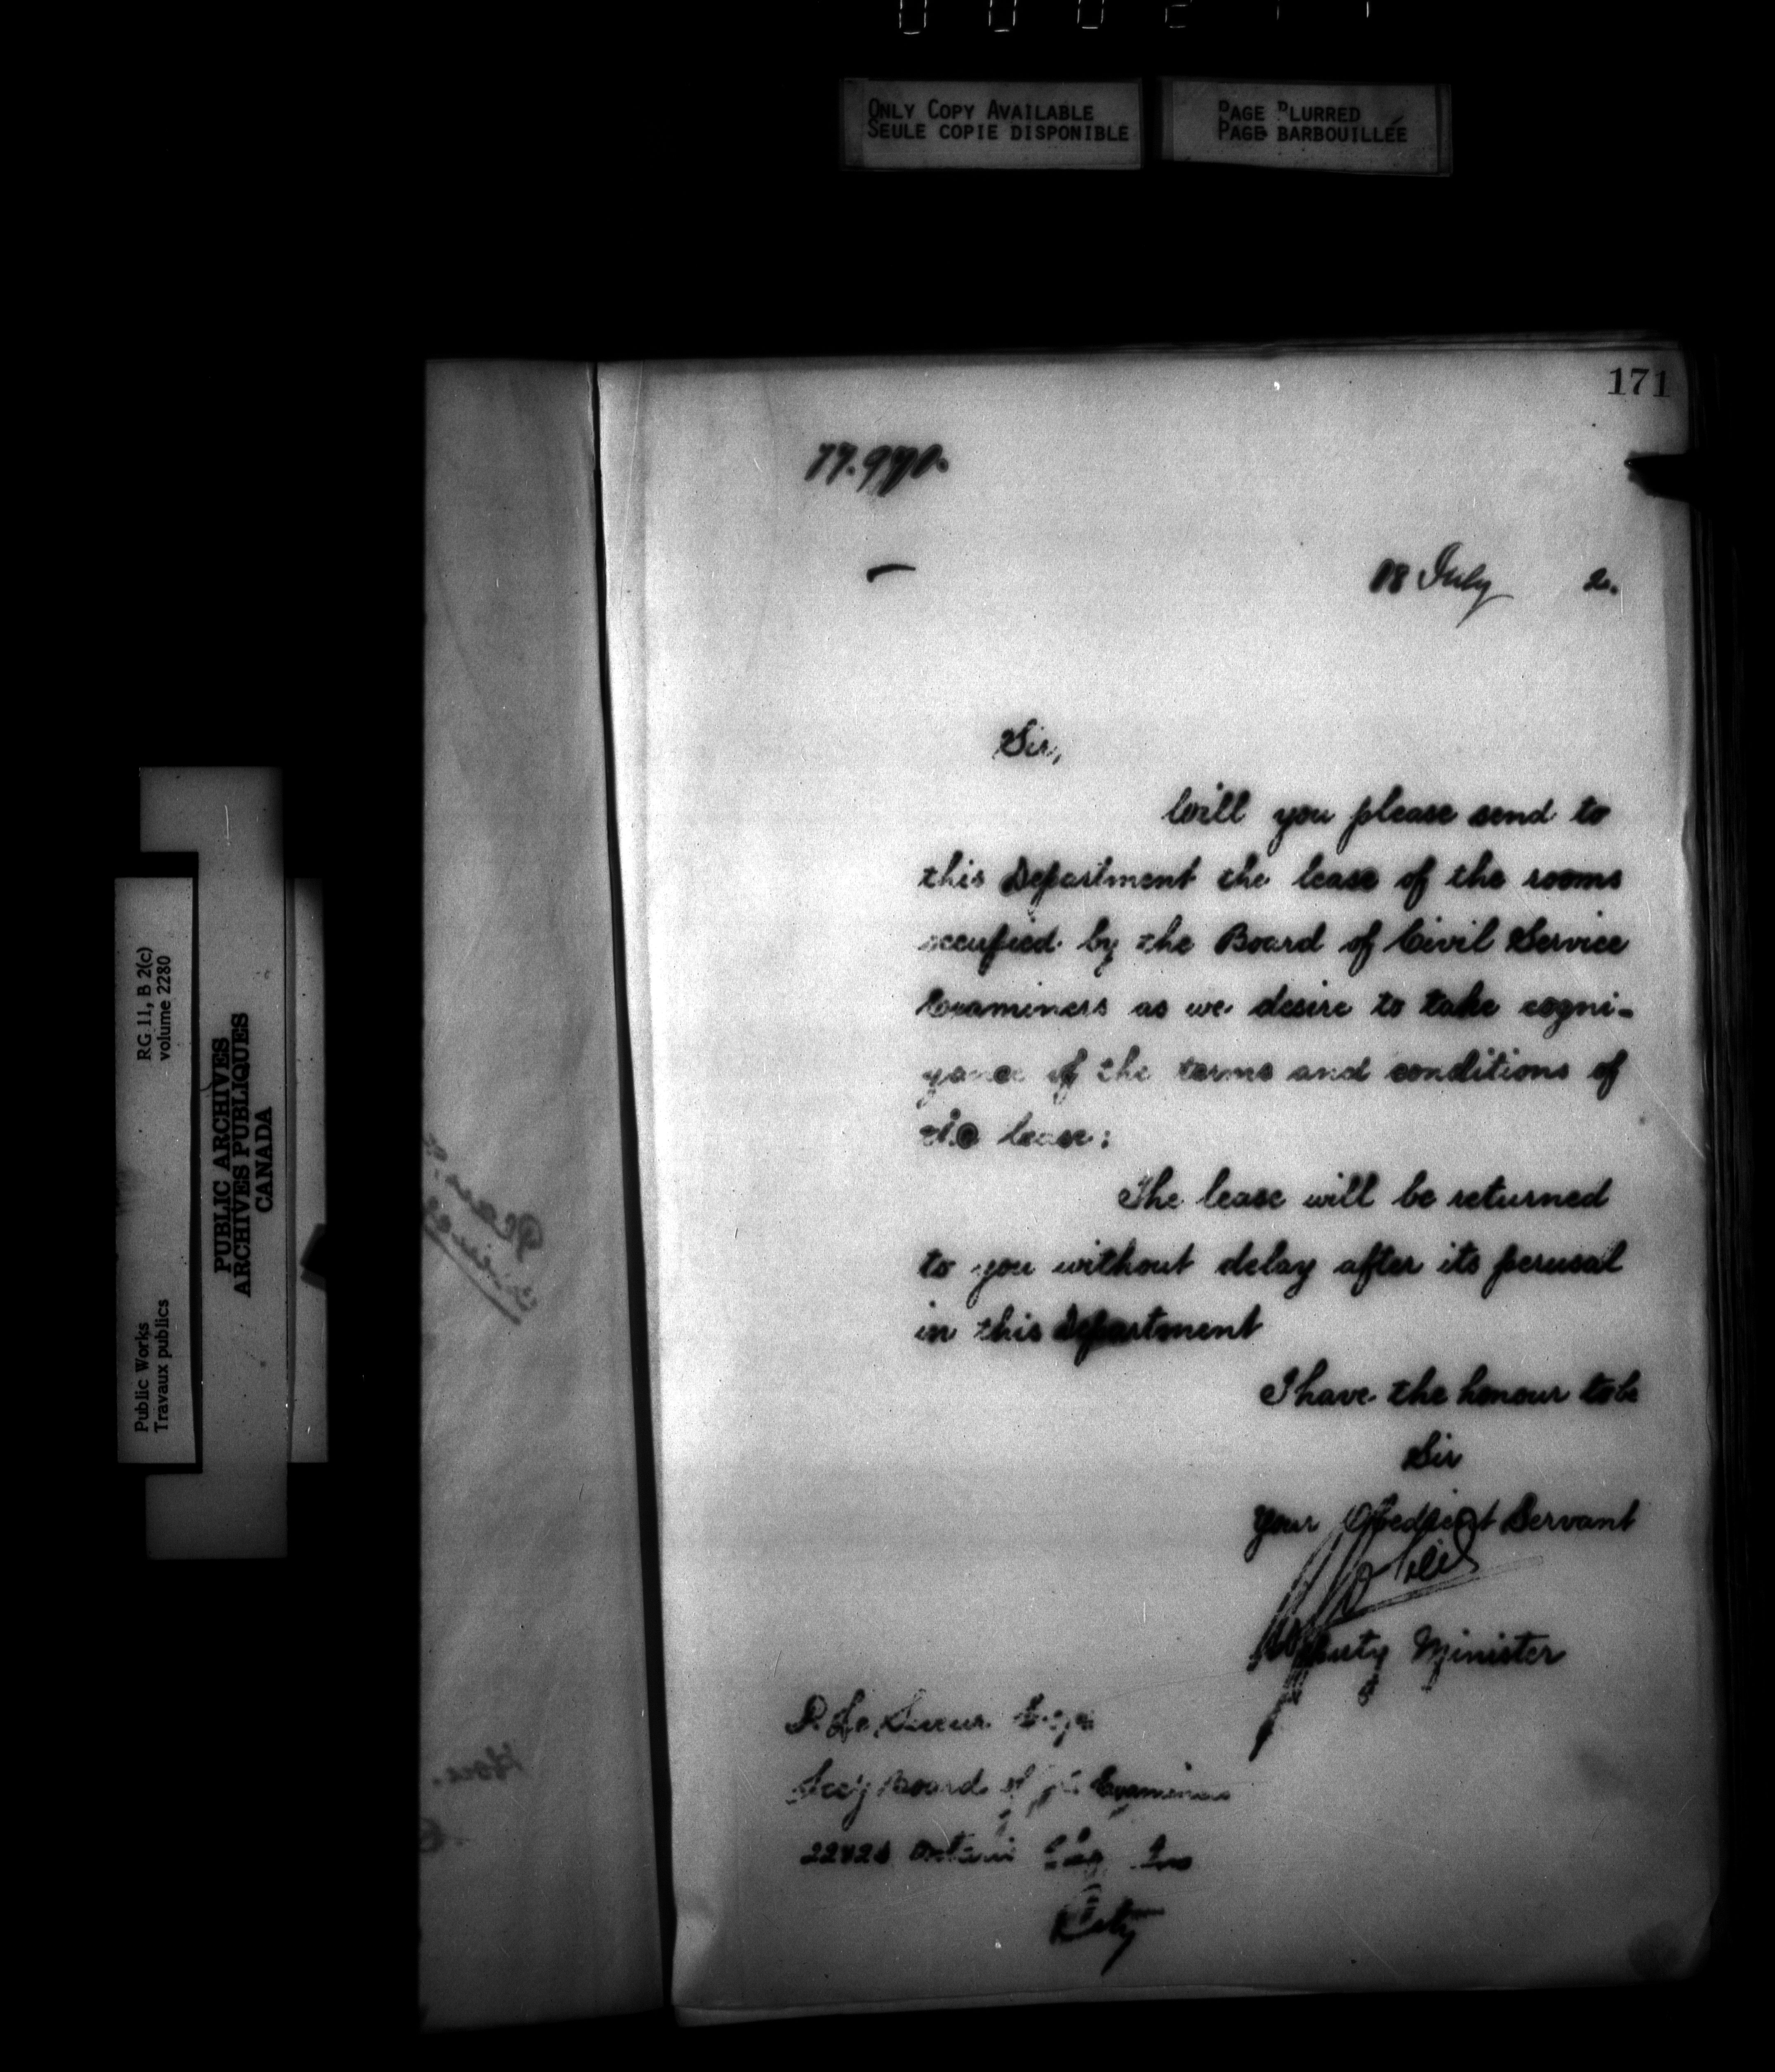 ONLY COPY AVAILABLE
SEULE COPIE DISPONIBLE
PAGE BLURRED
PAGE BARBOUILLÉE
171
18 July 2.
Sir,
Will you please send to
this Department the lease of the rooms
occupied by the Board of Civil Service
Examiners as we desire to take cogni-
zance of the terms and conditions of
the lease:
The lease will be returned
to you without delay after its perusal
in this Department
I have the honour to be
Sir
Your Obedient Servant
Deputy Minister
P. Le Sueur Esqre
Secy Board of Examiners
City
Public Works
Travaux publics
RG 11, B 2(c)
volume 2280
PUBLIC ARCHIVES
ARCHIVES PUBLIQUES
CANADA